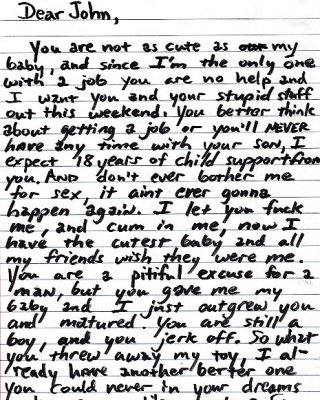 Dear John,
You are not as cute as my
baby, and since I'm the only one
with a job you are no help and
I want you and your stupid stuff
out this weekend. You better think
about getting a job or you'll NEVER
HAVE any time with your son, I
expect 18 years of child support from
you. AND don't ever bother me
for sex, it aint ever gonna
happen again. I let you fuck
me, and cum in me, now I
have the cutest baby and all
my friends wish they were me.
You are a pitiful excuse for a
man, but you gave me my
baby and I just outgrew you
and matured. You are still a
boy, and you jerk off. So what
you threw away my toy, I al-
ready HAVE another better one
you could never in your dreams